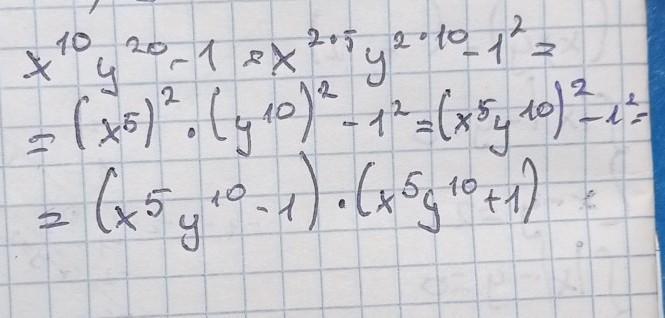 x¹⁰y²⁰ - 1 = x²·⁵y²·¹⁰ - 1² =
= (x⁵)² · (y¹⁰)² - 1² = (x⁵y¹⁰)² - 1² =
= (x⁵y¹⁰ - 1) · (x⁵y¹⁰ + 1)